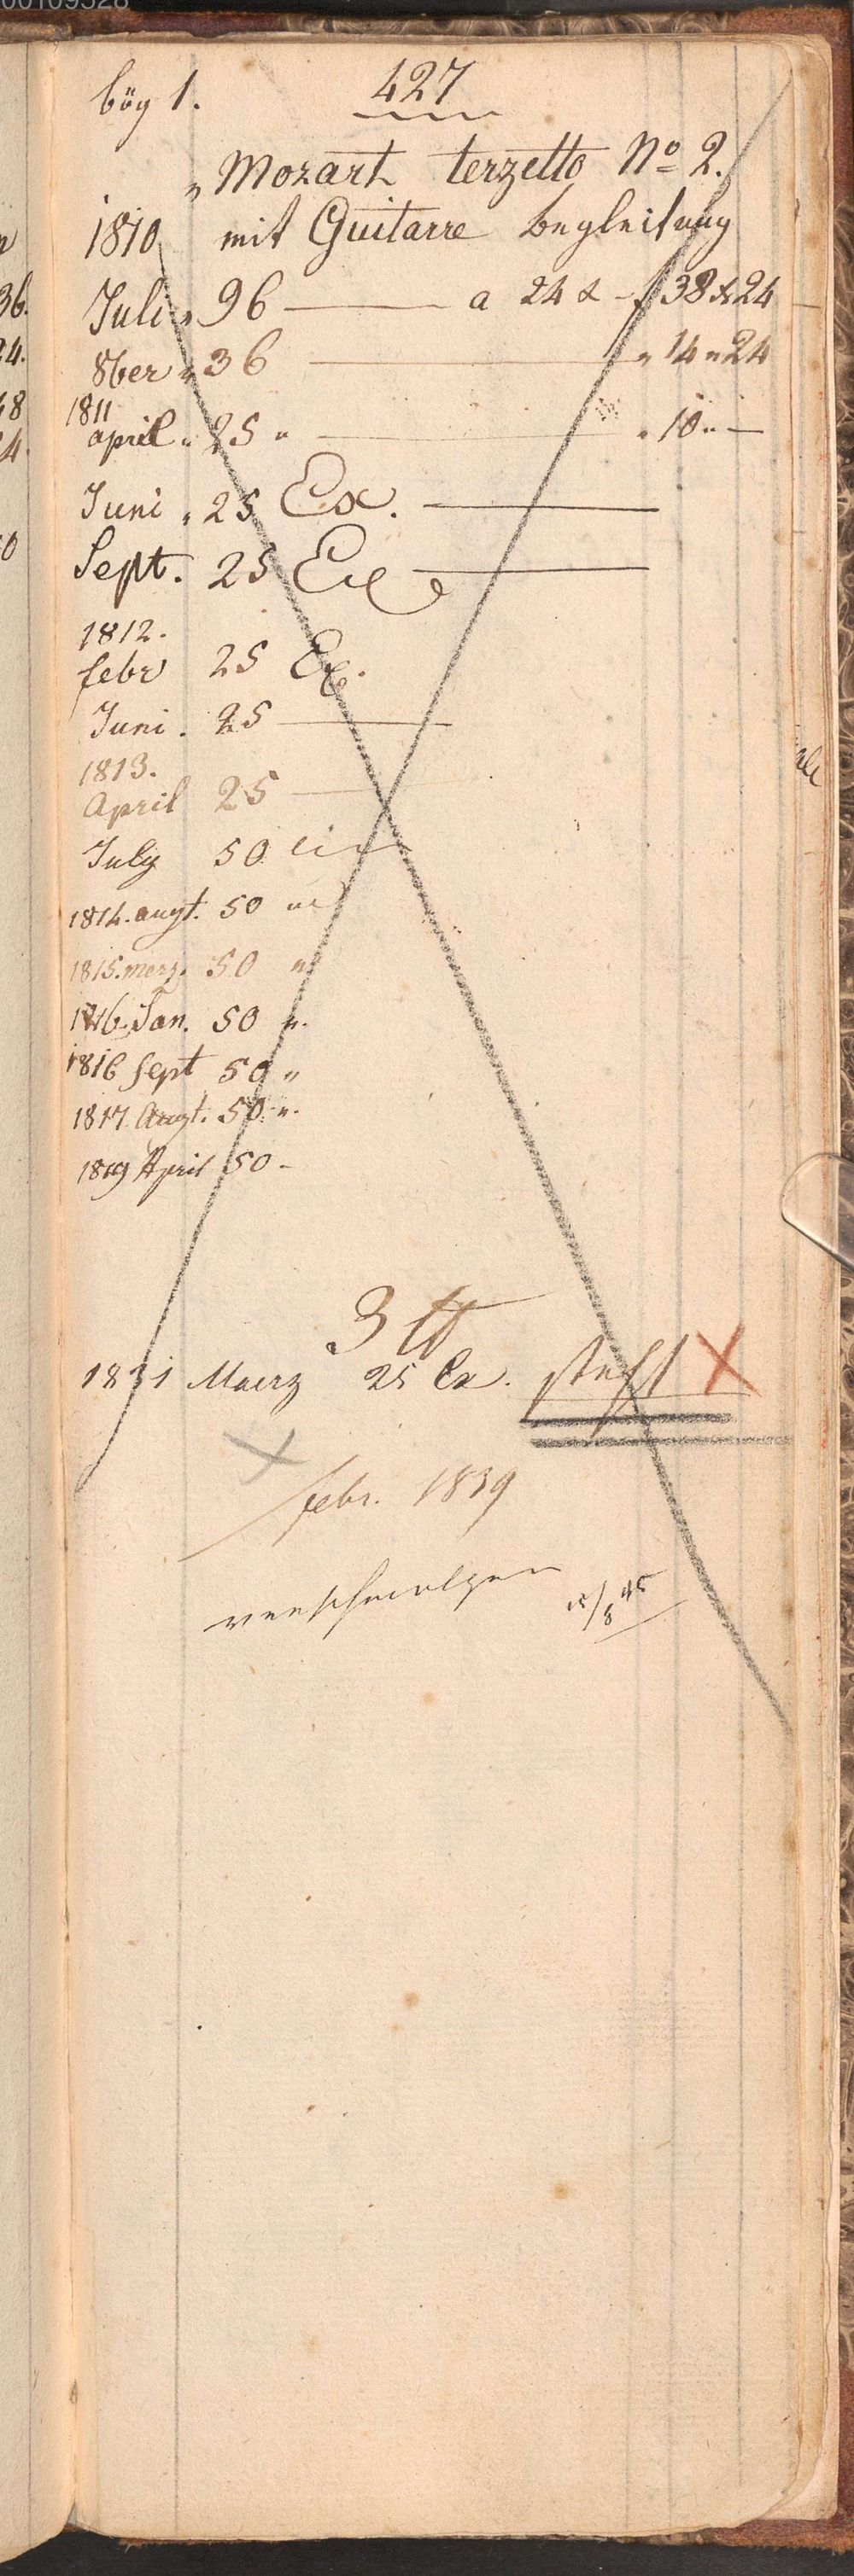 00109528
bög 1. 427
„ Mozart terzetto No 2.
1810 mit Guitarre begleitung
Juli „ 96 — a 24 x – f 38 x 24
8ber „ 36 — „ 14 „ 24
1811
april „ 25 „ — „ 10 „ —
Juni „ 25 Ex. —
Sept. 25 Ex —
1812.
febr 25 Ex.
Juni . 25 —
1813.
April 25 —
July 50
1814. augt. 50 „
1815. merz. 50 „
1816 Jan. 50 „.
1816 Sept 50 „
1817 Augt. 50 „.
1819 April 50 –
3 tt
1831 Maerz 25 Ex. steht X
X
febr. 1839
verschmolzen 15/8 45